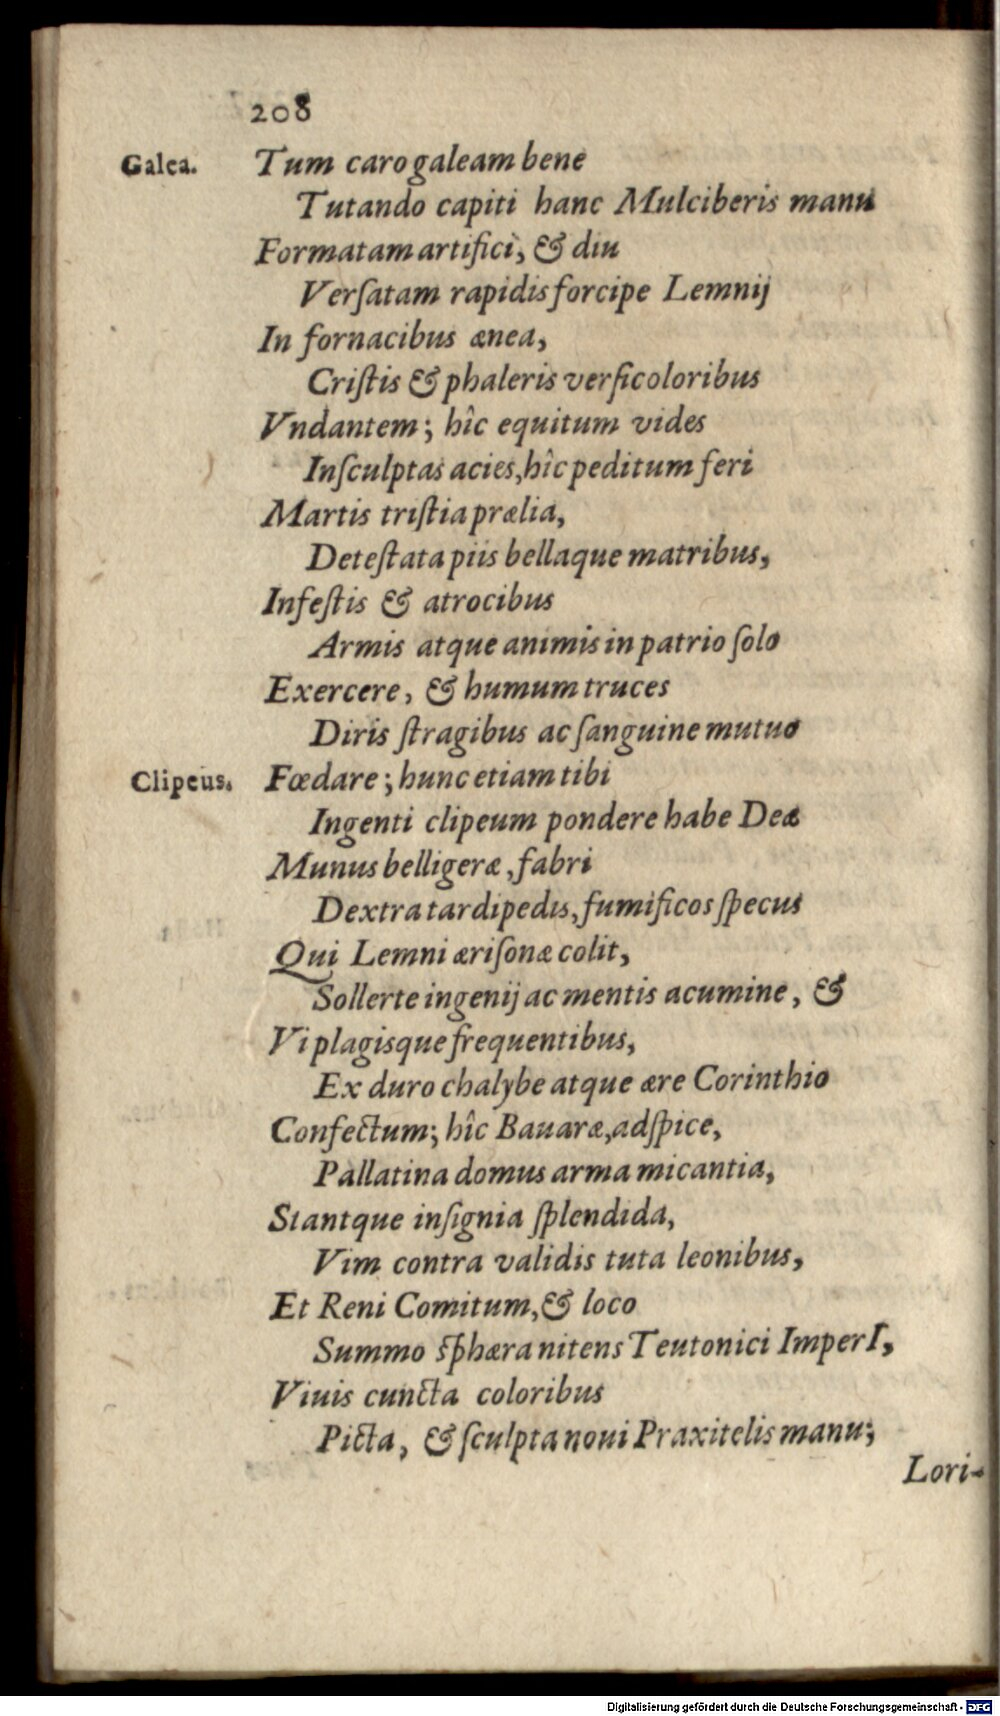 208
Galea. Tum caro galeam bene
Tutando capiti hanc Mulciberis manu
Formatam artifici, & diu
Verſatam rapidis forcipe Lemnij
In fornacibus ænea,
Criſtis & phaleris verſicoloribus
Vndantem; hîc equitum vides
Inſculptas acies, hîc peditum feri
Martis triſtia prælia,
Deteſtata piis bellaque matribus,
Infeſtis & atrocibus
Armis atque animis in patrio ſolo
Exercere, & humum truces
Diris ſtragibus ac ſanguine mutuo
Clipeus. Fœdare; hunc etiam tibi
Ingenti clipeum pondere habe Deæ
Munus belligeræ, fabri
Dextra tardipedis, fumificos ſpecus
Qui Lemni æriſonæ colit,
Sollerte ingenij ac mentis acumine, &
Vi plagisque frequentibus,
Ex duro chalybe atque ære Corinthio
Confectum; hîc Bauaræ, adſpice,
Pallatina domus arma micantia,
Stantque inſignia ſplendida,
Vim contra validis tuta leonibus,
Et Reni Comitum, & loco
Summo ſphæra nitens Teutonici ImperI,
Viuis cuncta coloribus
Picta, & ſculpta noui Praxitelis manu;
Lori-
Digitalisierung gefördert durch die Deutsche Forschungsgemeinschaft - DFG